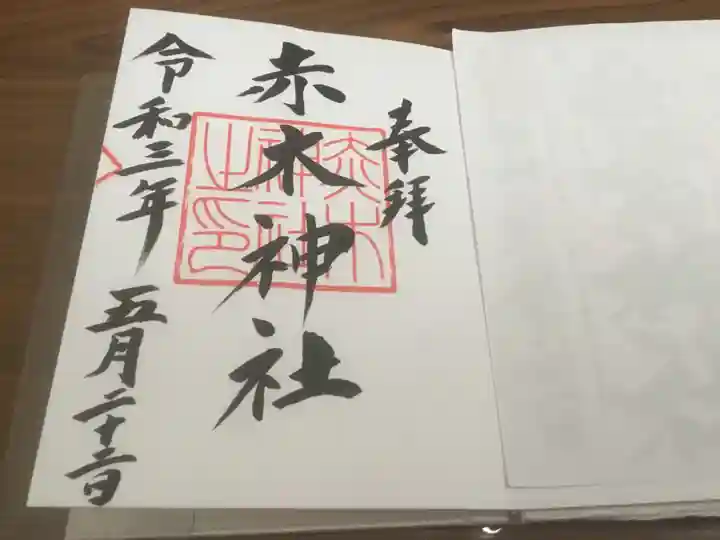 奉拜
赤木神社
令和三年 五月二十三日
赤木
神社
之印